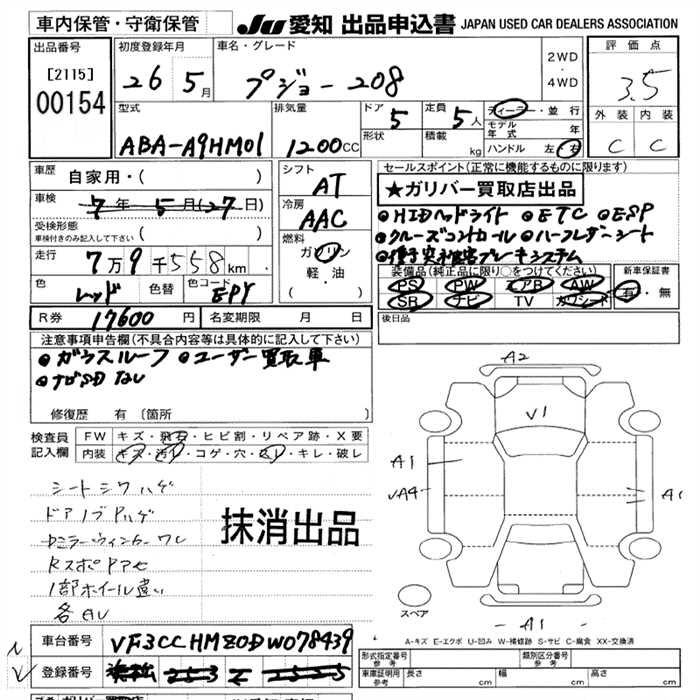 車内保管・守衛保管
JU 愛知 出品申込書 JAPAN USED CAR DEALERS ASSOCIATION
出品番号
[2115]
00154
初度登録年月
26 5月
車名・グレード
プジョー 208
2WD
・
4WD
評価点
3.5
外装 内装
C C
型式
ABA-A9HM01
排気量
1200CC
ドア 5
形状
定員 5人
積載 kg
ディーラー・並行
モデル年式 年
ハンドル 左・右
車歴 自家用・( )
車検 7年 5月(27日)
受検形態
車検付きのみ記入して下さい ( )
走行 7万9千558km
色 レッド 色替 色コード EPY
R券 17600円 名変期限 月 日
シフト AT
冷房 AAC
燃料 ガソリン
軽・油
( )
セールスポイント(正常に機能するものに限ります)
★ガリバー買取店出品
●HIDヘッドライト ●ETC ●ESP
●クルーズコントロール ●ハーフレザーシート
●衝突 ブレーキシステム
装備品(純正品に限り○をつけてください)
PS PW エアB AW
SR ナビ TV カワシート
新車保証書
有・無
後日品
注意事項申告欄(不具合内容等は具体的に記入して下さい)
●ガラスルーフ ●ユーザー買取車
●ナビSDなし
修復歴 有 〔箇所 〕
検査員記入欄
FW キズ・飛石・ヒビ割・リペア跡・X要
内装 キズ・汚レ・コゲ・穴・スレ・キレ・破レ
シートシワハゲ
ドアノブPハゲ
ワレ
RスポPアセ
1部ホイール違い
各AU
抹消出品
A2
V1
A1
A4
A1
A1
スペア
車台番号 VF3CCHMZ0DW078439
登録番号 253 2525
A-キズ E-エクボ U-凹み W-補修跡 S-サビ C-腐食 XX-交換済
形式指定番号
参考
類別区分番号
参考
車庫証明用
参考
長さ cm 幅 cm 高さ cm